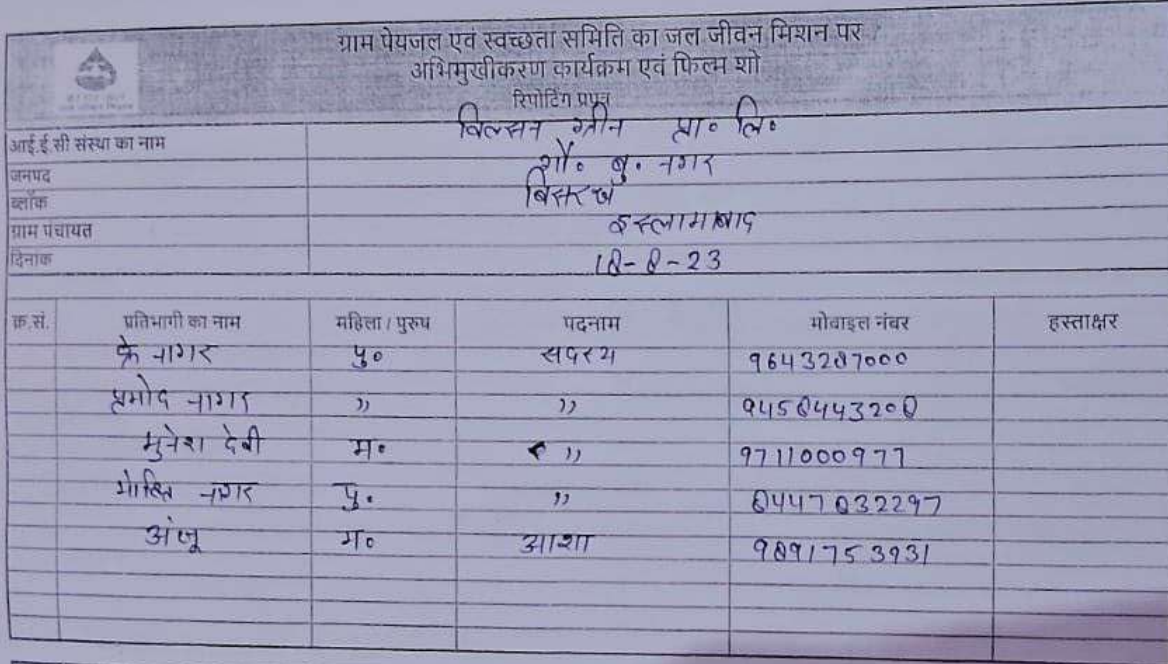 ग्राम पेयजल एवं स्वच्छता समिति का जल जीवन मिशन पर
अभिमुखीकरण कार्यक्रम एवं फिल्म शो
रिपोर्टिंग प्रपत्र
आई.ई.सी संस्था का नाम विल्सन ग्रीन प्रा० लि०
जनपद गौ० बु० नगर
ब्लॉक बिसरख
ग्राम पंचायत इस्लामाबाद
दिनांक 18-8-23
क्र.सं. प्रतिभागी का नाम महिला / पुरुष पदनाम मोबाइल नंबर हस्ताक्षर
के नागर पु० सदस्य 9643287000
प्रमोद नागर " " 9458443208
मुनेश देवी म० " 9711000977
मोहित नागर पु. " 8447832297
अंजू म० आशा 9891753931